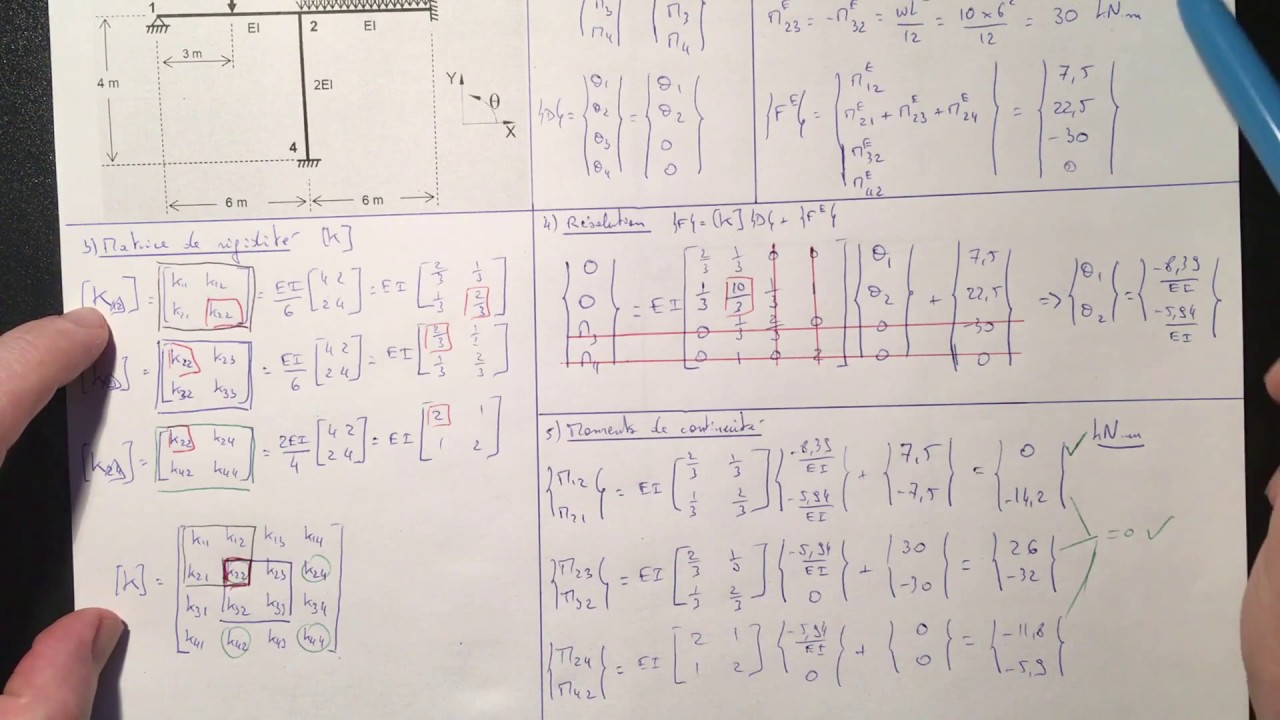 1
EI
2
EI
3 m
4 m
2EI
4
6 m
6 m
Y
θ
X
{ M3 M4 } { M3 M4 }
{D} = { θ1 θ2 θ3 θ4 } = { θ1 θ2 0 0 }
M23^E = -M32^E = wL²/12 = 10 x 6²/12 = 30 kN.m
{F^E} = { M12^E M21^E + M23^E + M24^E M32^E M42^E } = { 7,5 22,5 -30 0 }
3) Matrice de rigidité [K]
[K12] = [ k11 k12 k21 k22 ] = EI/6 [ 4 2 2 4 ] = EI [ 2/3 1/3 1/3 2/3 ]
= [ k22 k23 k32 k33 ] = EI/6 [ 4 2 2 4 ] = EI [ 2/3 1/3 1/3 2/3 ]
[K24] = [ k22 k24 k42 k44 ] = 2EI/4 [ 4 2 2 4 ] = EI [ 2 1 1 2 ]
[K] = [ k11 k12 k13 k14
k21 k22 k23 k24
k31 k32 k33 k34
k41 k42 k43 k44 ]
4) Résolution {F} = [K] {D} + {F^E}
{ 0 0 M3 M4 } = EI [ 2/3 1/3 0 0 1/3 10/3 1/3 0 1/3 2/3 0 0 1 0 2 ] { θ1 θ2 0 0 } + { 7,5 22,5 -30 0 } => { θ1 θ2 } = { -8,39/EI -5,94/EI }
5) Moments de continuité
kN.m
{ M12 M21 } = EI [ 2/3 1/3 1/3 2/3 ] { -8,39/EI -5,94/EI } + { 7,5 -7,5 } = { 0 -14,2 } ✓
{ M23 M32 } = EI [ 2/3 1/3 1/3 2/3 ] { -5,94/EI 0 } + { 30 -30 } = { 26 -32 } = 0 ✓
{ M24 M42 } = EI [ 2 1 1 2 ] { -5,94/EI 0 } + { 0 0 } = { -11,8 -5,9 }